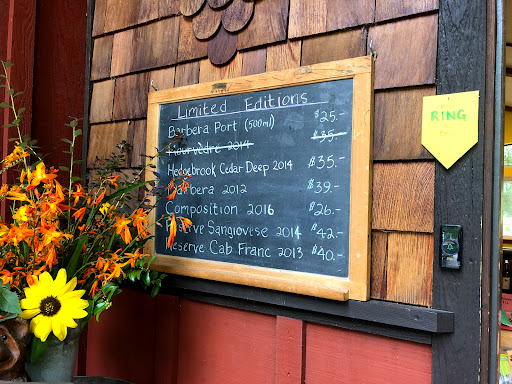 Limited Editions
Barbera Port (500ml) $25.-
Mourvèdre 2014 $35.-
Hedgebrook Cedar Deep 2014 $35.-
Barbera 2012 $39.-
Composition 2016 $26.-
Reserve Sangiovese 2014 $42.-
Reserve Cab Franc 2013 $40.-
RING